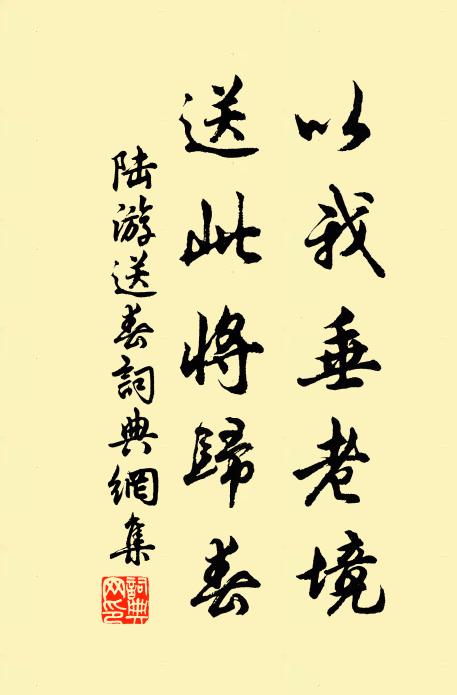 以我垂老境
送此將歸春
陸游送春詞典網集
詞典網印